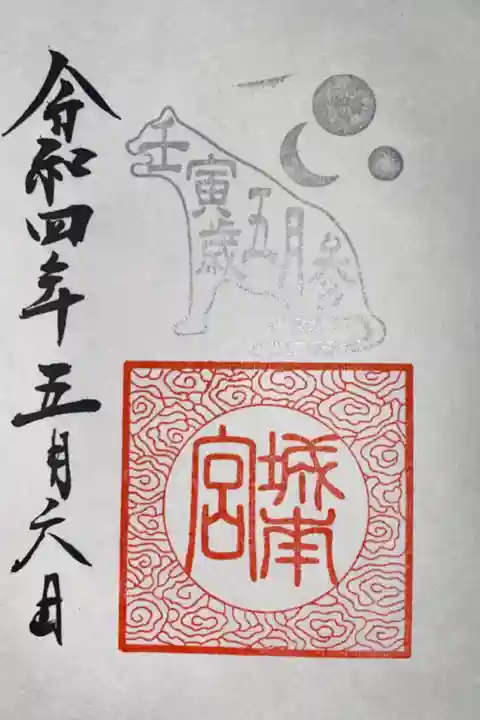 壬寅歳五月
城南宮
令和四年五月六日